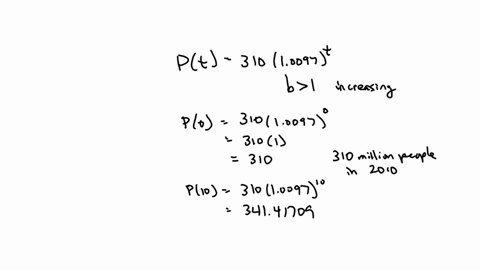 P(t) = 310 (1.0097)^t
b>1 increasing
P(0) = 310 (1.0097)^0
= 310 (1)
= 310
310 million people
in 2010
P(10) = 310 (1.0097)^10
= 341.41709